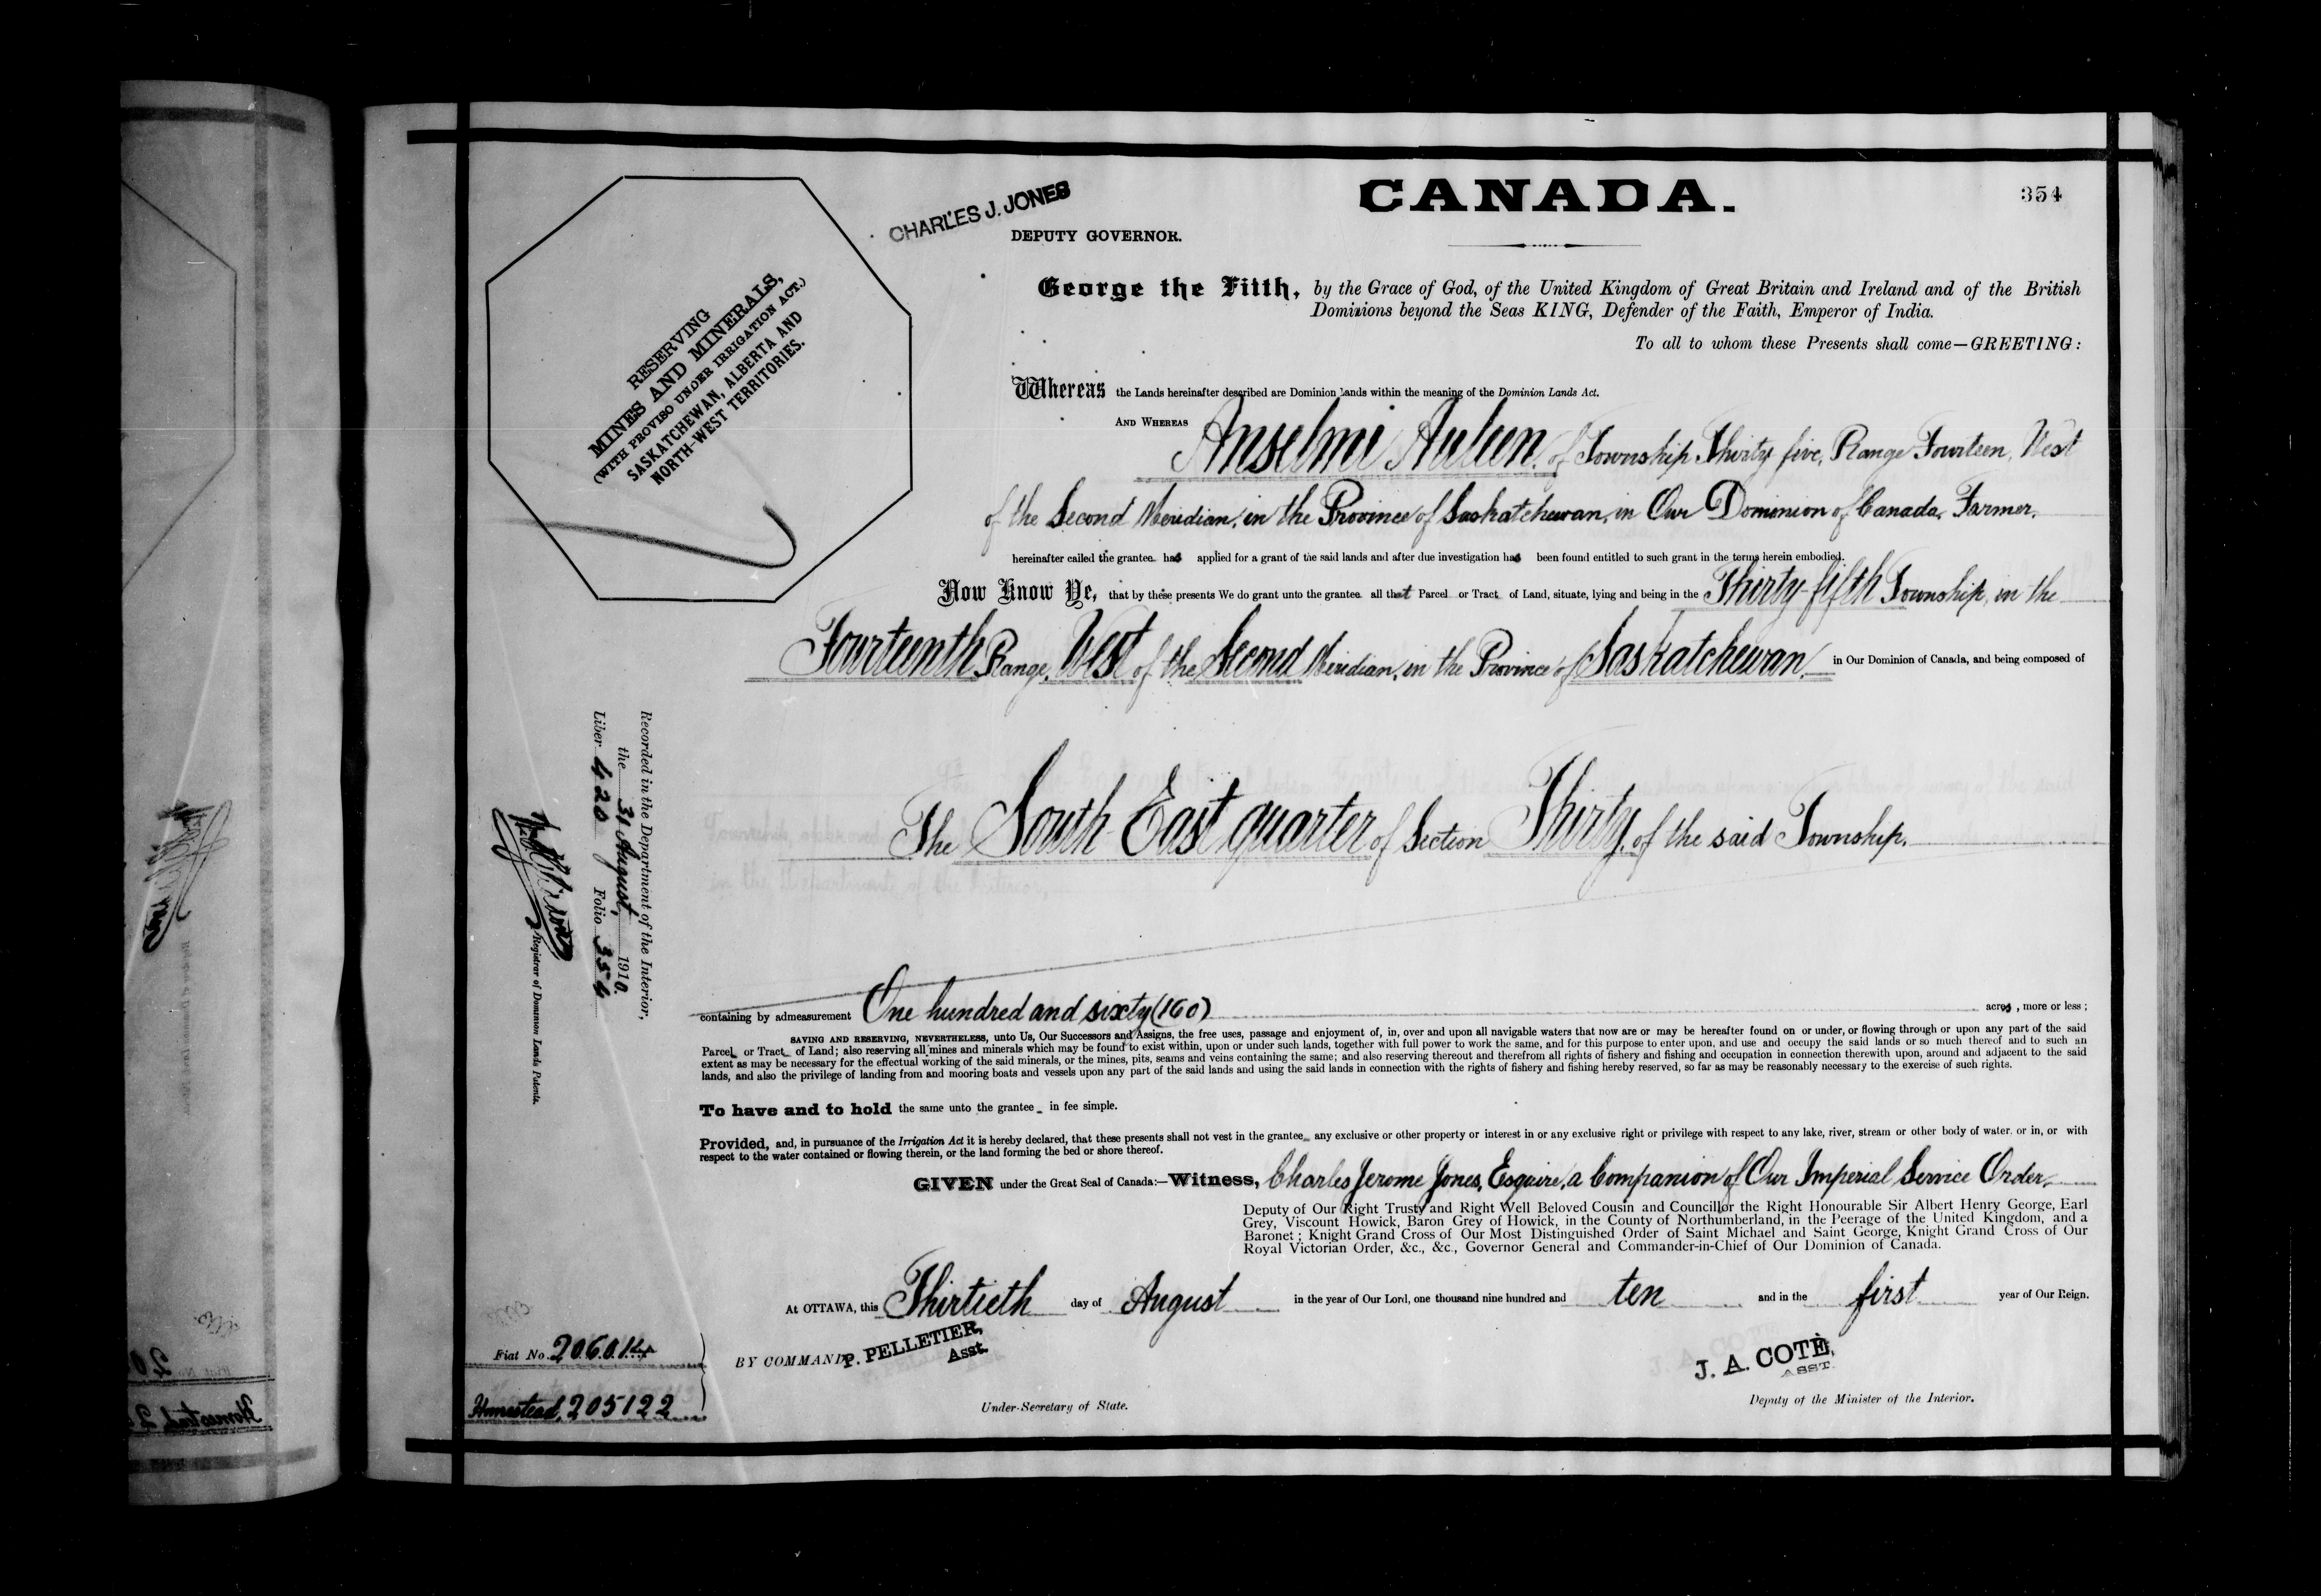 CANADA.
354
CHARLES J. JONES
DEPUTY GOVERNOR.
RESERVING
MINES AND MINERALS,
(WITH PROVISO UNDER IRRIGATION ACT.)
SASKATCHEWAN, ALBERTA AND
NORTH-WEST TERRITORIES.
George the Fifth, by the Grace of God, of the United Kingdom of Great Britain and Ireland and of the British
Dominions beyond the Seas KING, Defender of the Faith, Emperor of India.
To all to whom these Presents shall come—GREETING:
Whereas the Lands hereinafter described are Dominion Lands within the meaning of the Dominion Lands Act.
AND WHEREAS Anselmi of Township Thirty five, Range Fourteen, West
of the Second Meridian, in the Province of Saskatchewan, in Our Dominion of Canada, Farmer.
hereinafter called the grantee has applied for a grant of the said lands and after due investigation has been found entitled to such grant in the terms herein embodied.
Now Know Ye, that by these presents We do grant unto the grantee all that Parcel or Tract of Land, situate, lying and being in the Thirty-fifth Township, in the
Fourteenth Range, West of the Second Meridian, in the Province of Saskatchewan, in Our Dominion of Canada, and being composed of
The South East quarter of Section Thirty, of the said Township.
containing by admeasurement One hundred and sixty (160) acres, more or less;
SAVING AND RESERVING, NEVERTHELESS, unto Us, Our Successors and Assigns, the free uses, passage and enjoyment of, in, over and upon all navigable waters that now are or may be hereafter found on or under, or flowing through or upon any part of the said
Parcel or Tract of Land; also reserving all mines and minerals which may be found to exist within, upon or under such lands, together with full power to work the same, and for this purpose to enter upon, and use and occupy the said lands or so much thereof and to such an
extent as may be necessary for the effectual working of the said minerals, or the mines, pits, seams and veins containing the same; and also reserving thereout and therefrom all rights of fishery and fishing and occupation in connection therewith upon, around and adjacent to the said
lands, and also the privilege of landing from and mooring boats and vessels upon any part of the said lands and using the said lands in connection with the rights of fishery and fishing hereby reserved, so far as may be reasonably necessary to the exercise of such rights.
To have and to hold the same unto the grantee in fee simple.
Provided, and, in pursuance of the Irrigation Act it is hereby declared, that these presents shall not vest in the grantee any exclusive or other property or interest in or any exclusive right or privilege with respect to any lake, river, stream or other body of water, or in, or with
respect to the water contained or flowing therein, or the land forming the bed or shore thereof.
GIVEN under the Great Seal of Canada:—Witness, Charles Jerome Jones, Esquire, a Companion of Our Imperial Service Order,
Deputy of Our Right Trusty and Right Well Beloved Cousin and Councillor the Right Honourable Sir Albert Henry George, Earl
Grey, Viscount Howick, Baron Grey of Howick, in the County of Northumberland, in the Peerage of the United Kingdom, and a
Baronet; Knight Grand Cross of Our Most Distinguished Order of Saint Michael and Saint George, Knight Grand Cross of Our
Royal Victorian Order, &c., &c., Governor General and Commander-in-Chief of Our Dominion of Canada.
At OTTAWA, this Thirtieth day of August in the year of Our Lord, one thousand nine hundred and ten and in the first year of Our Reign.
BY COMMAND, P. PELLETIER,
Asst.
Under-Secretary of State.
J. A. COTÉ,
ASST.
Deputy of the Minister of the Interior.
Fiat No. 206014
Homestead, 205122
Recorded in the Department of the Interior,
the 31 August, 1910.
Liber 420 Folio 354
Registrar of Dominion Lands Patents.